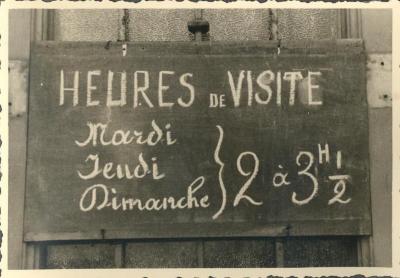 HEURES DE VISITE
Mardi
Jeudi
Dimanche
2 à 3 H 1/2